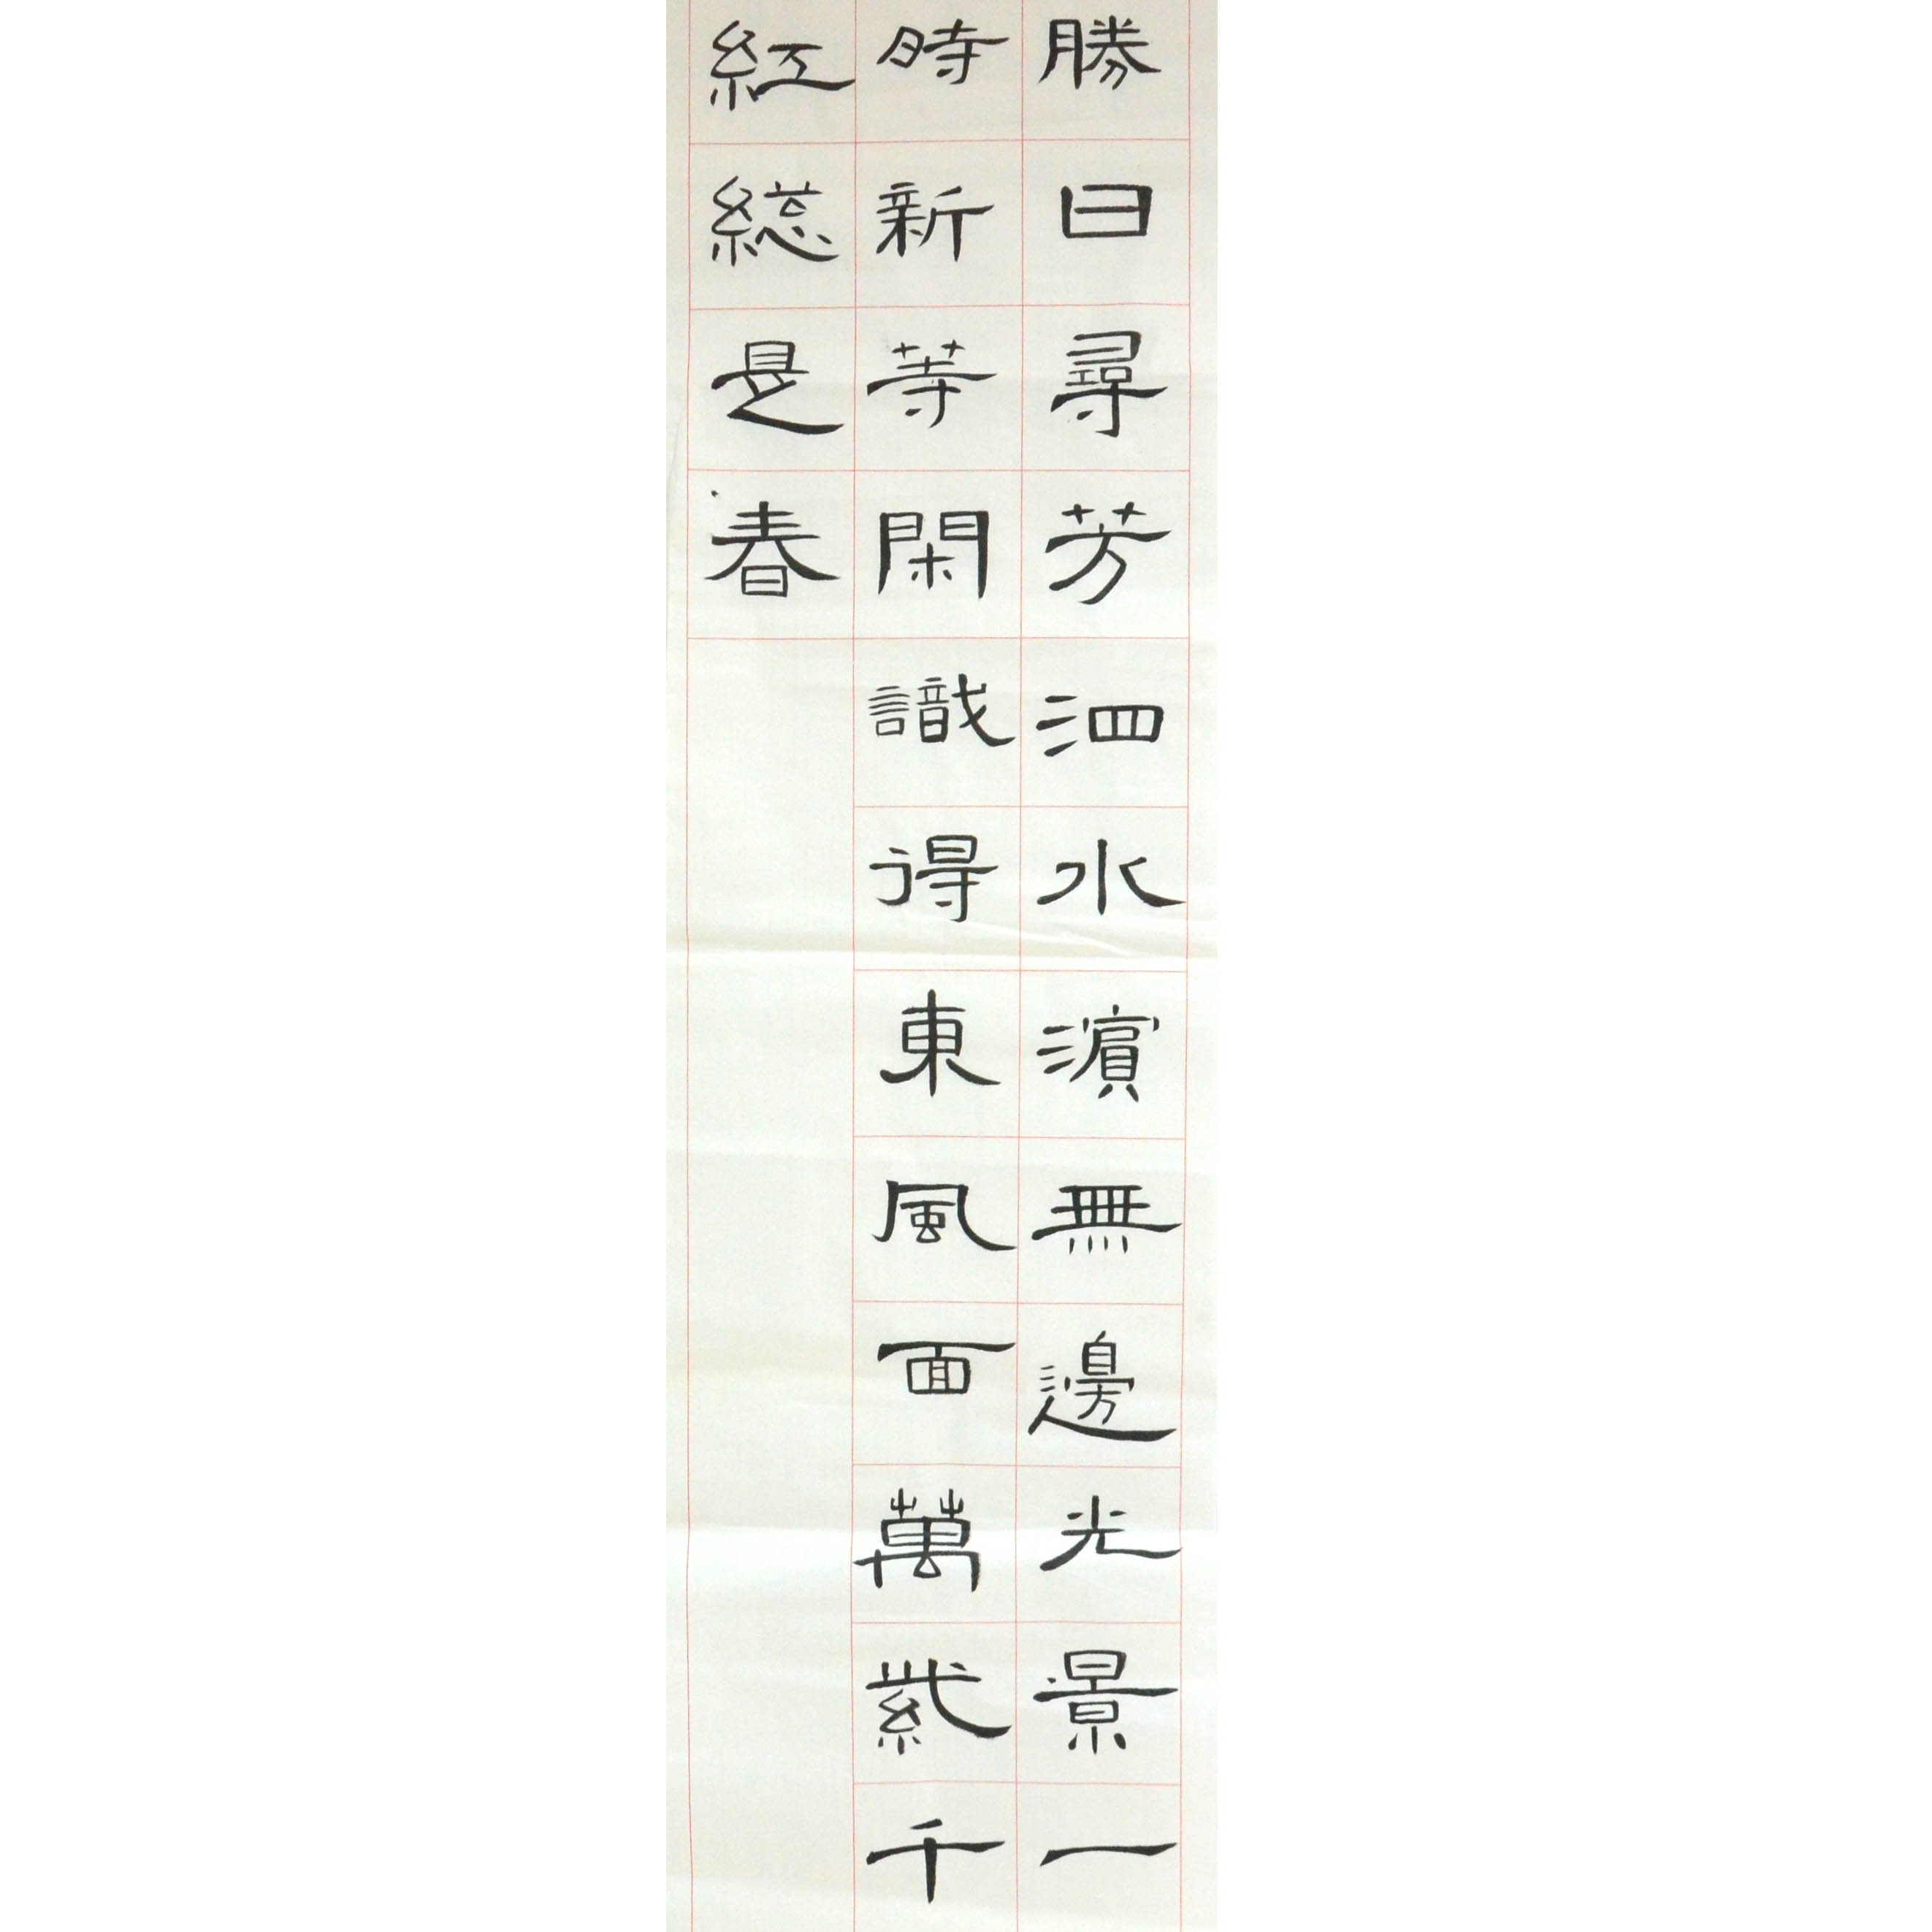 勝日尋芳泗水濱無邊光景一
時新等閑識得東風面萬紫千
紅総是春